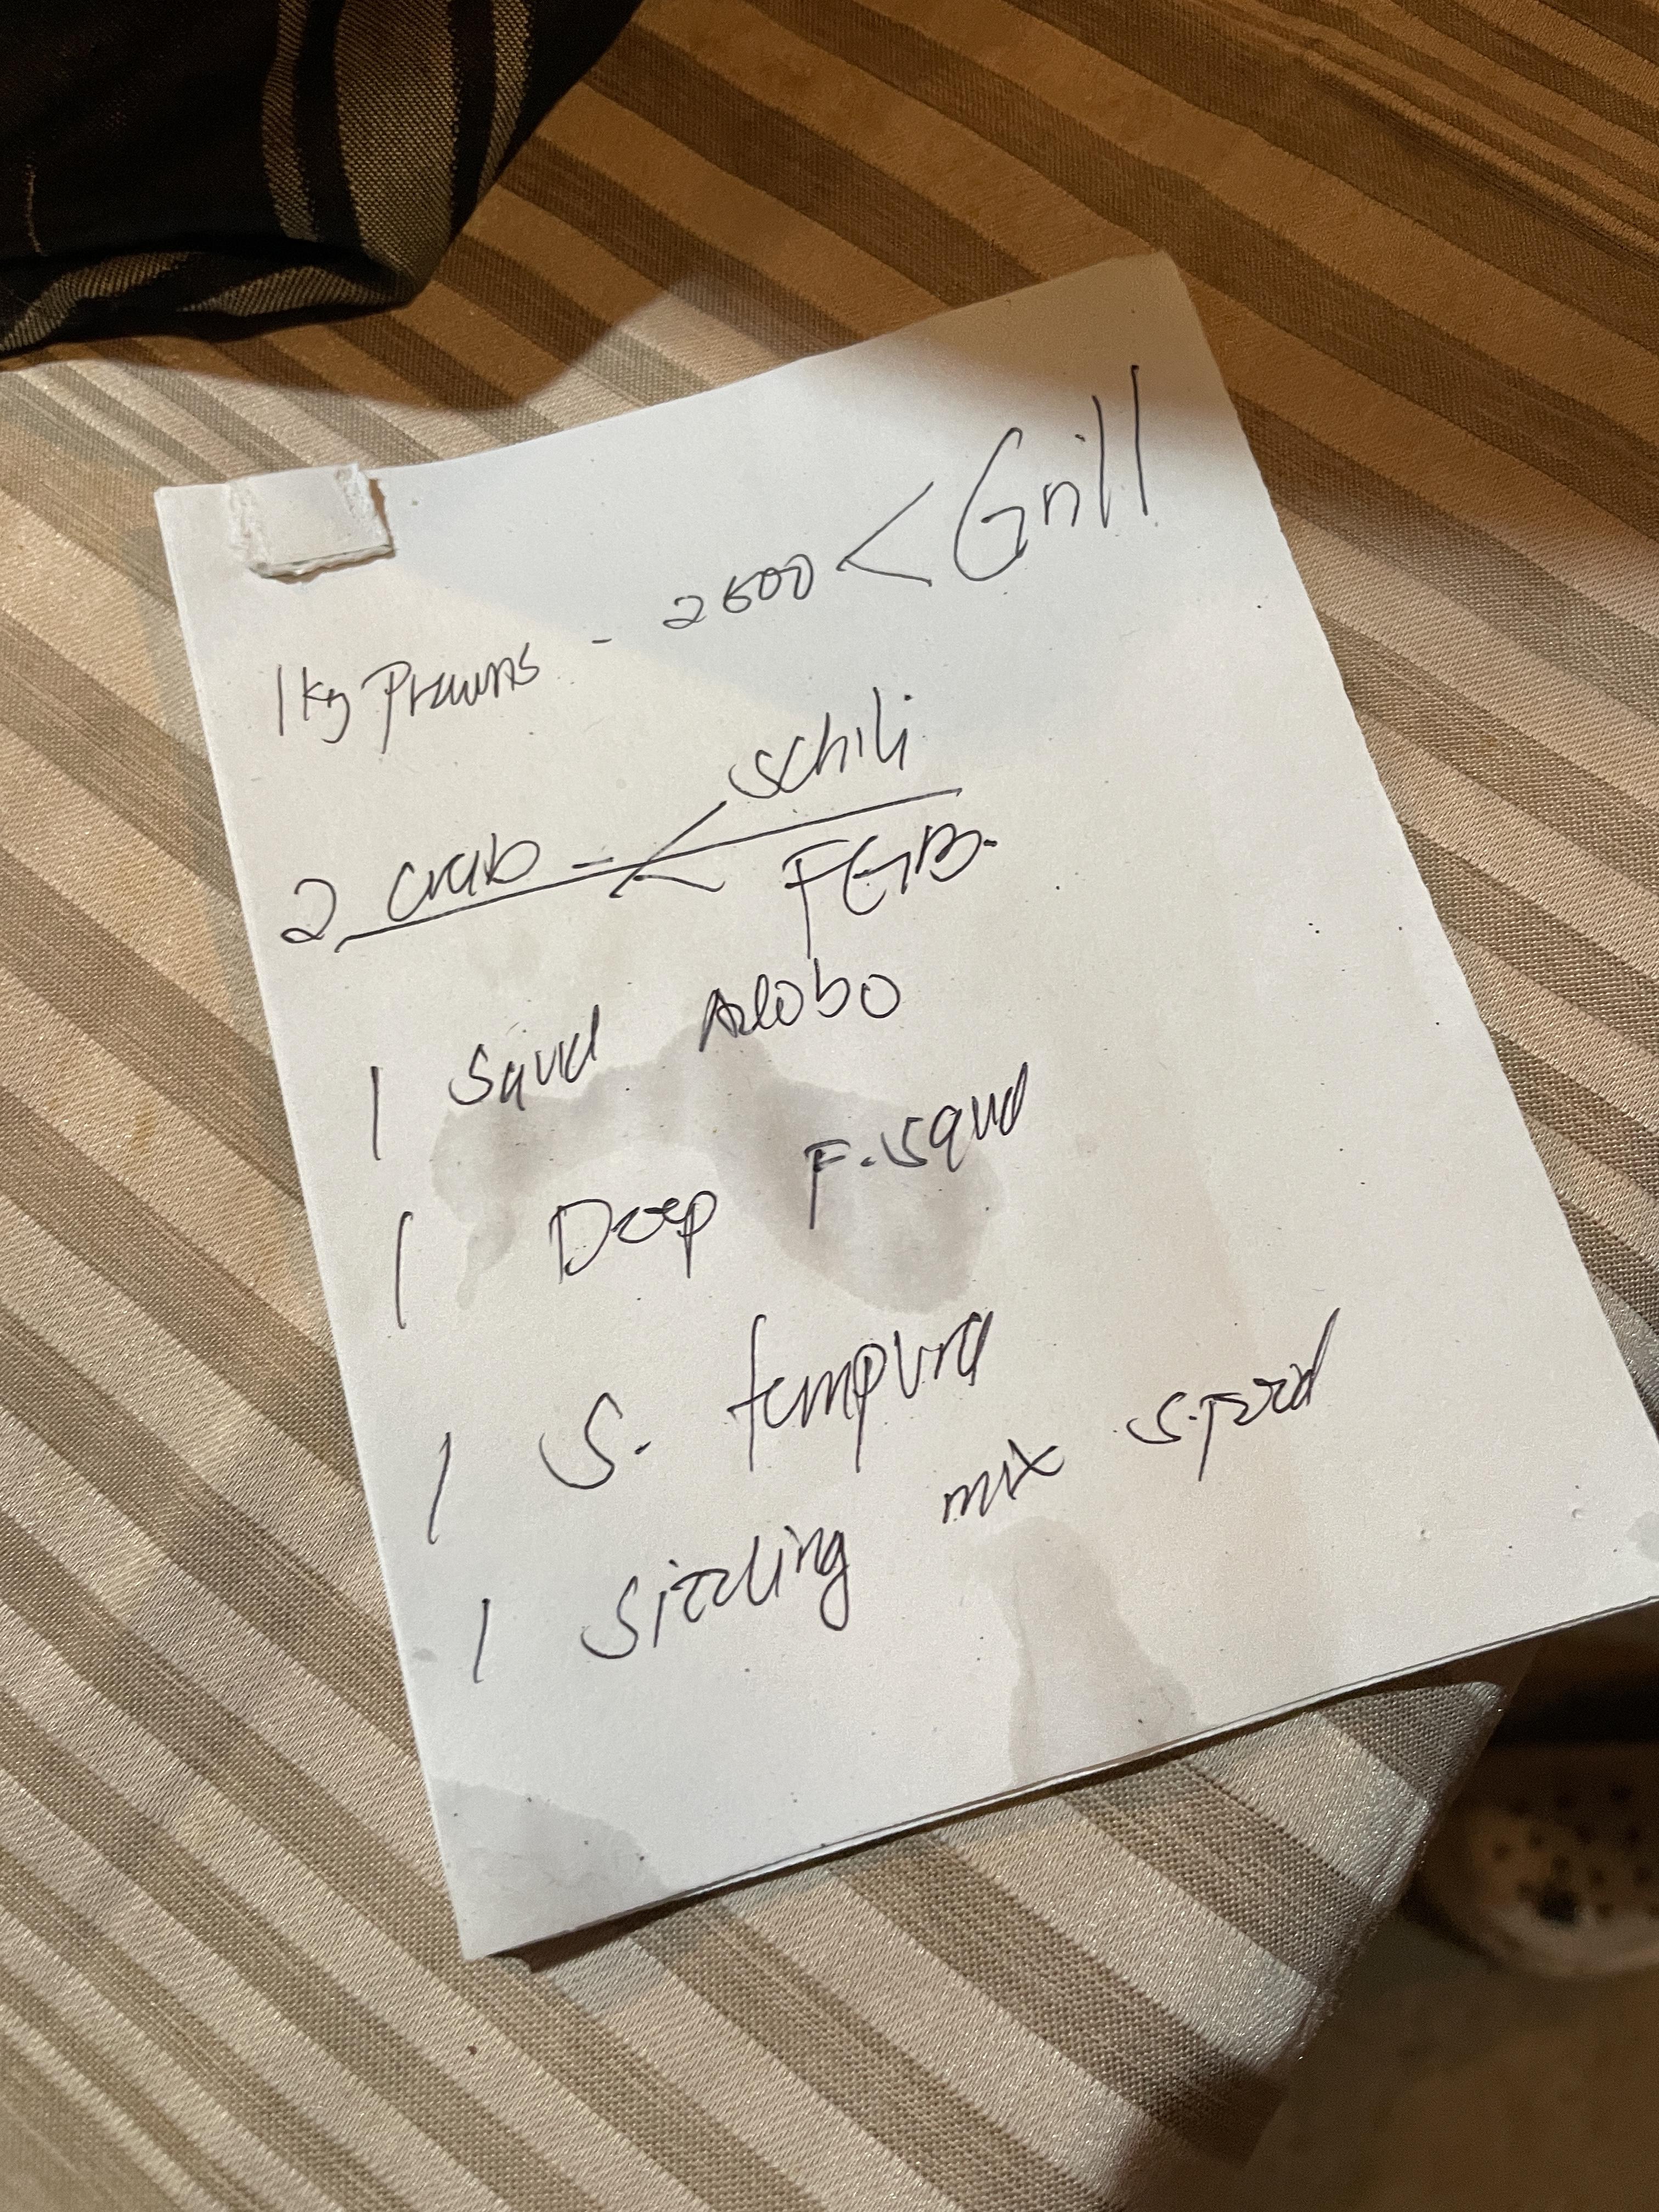 1 kg Prawns - 2500 < Grill
2 crab - < schili
FGB.
1 Squid Adobo
1 Deep F. Squid
1 S. tempura
1 Sizzling mix S.food